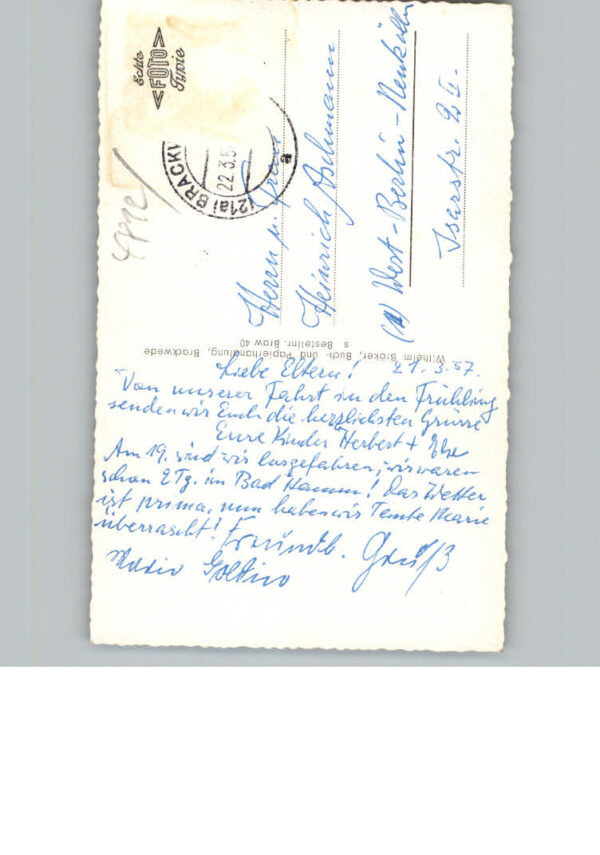 Echte
FOTO
Typie
(21a) BRACKW
22.3.5
a
Herrn u. Frau
Heinrich Aschmann
(1) West-Berlin-Neukölln
Iserstr. 9 II.
Wilhelm Bröker, Buch- und Papierhandlung, Brackwede
s Bestellnr. Braw 40
Liebe Eltern! 21.3.57.
Von unserer Fahrt in den Frühling
senden wir Euch die herzlichsten Grüsse
Eure Kinder Herbert +
Am 19. sind wir losgefahren, wir waren
schon 2 Tg. im Bad Hamm! Das Wetter
ist prima, nun haben wir Tante Marie
überrascht! Freundl. Gruß